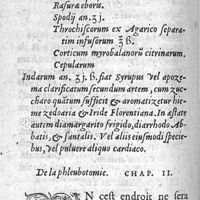 Rasuræ eboris.
Spodij an. ʒj.
Throchiscorum ex Agarico separa-
tim infusorum ʒ ß.
Corticum myrobalanorũ citrinarum,
Cepularum
Indarum an. ʒj. ß. fiat Syrupus vel apoze-
ma clarificatum secundum artem, cum zuc-
charo quãtum sufficit & aromatizetur hie-
me zedoaria & Iride Florentiana. In æstate
autem diamargarito frigido, diarrhodo Ab-
batis, & santalis. Vel aliis eiusmodi specie-
bus, vel puluere aliquo cardiaco.
De la phleubotomie. CHAP. II.
N cest endroit ne sera